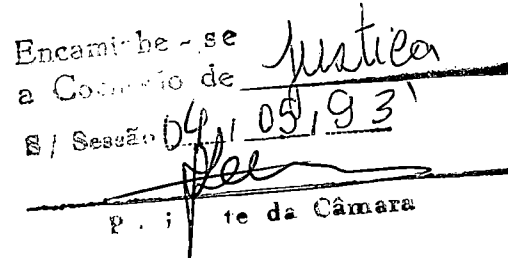 Encaminhe-se
a Comissão de Justiça
S/ Sessão 04, 05, 93
da Câmara